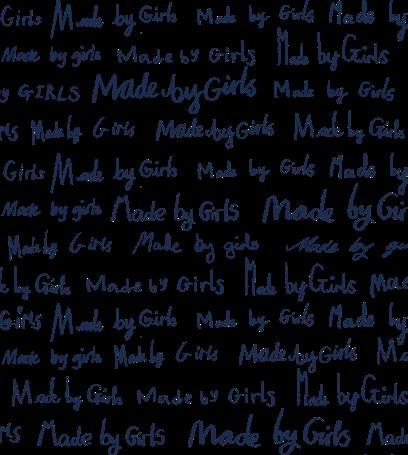 Girls Made by Girls Made by Girls Made by
Made by girls Made by Girls Made by Girls
by GIRLS Made by Girls Made by Girls
Made by Girls Made by Girls Made by Girls
Girls Made by Girls Made by Girls Made by
Made by girls Made by Girls Made by Gir
Made by Girls Made by girls Made by
by Girls Made by Girls Made by Girls Made
Girls Made by Girls Made by Girls Made by
Made by girls Made by Girls Made by Girls
Made by Girls Made by Girls Made by Girls
Made by Girls Made by Girls Made